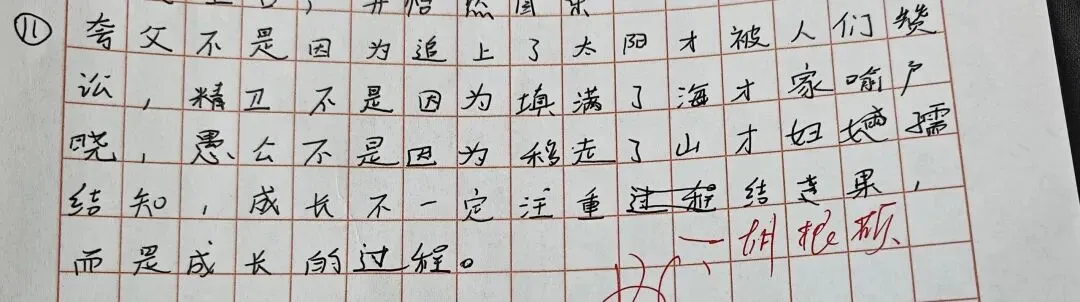 ⑪ 夸父不是因为追上了太阳才被人们赞
讼，精卫不是因为填满了海才家喻户
晓，愚公不是因为移走了山才妇孺
结知，成长不一定注重过程结果，
而是成长的过程。